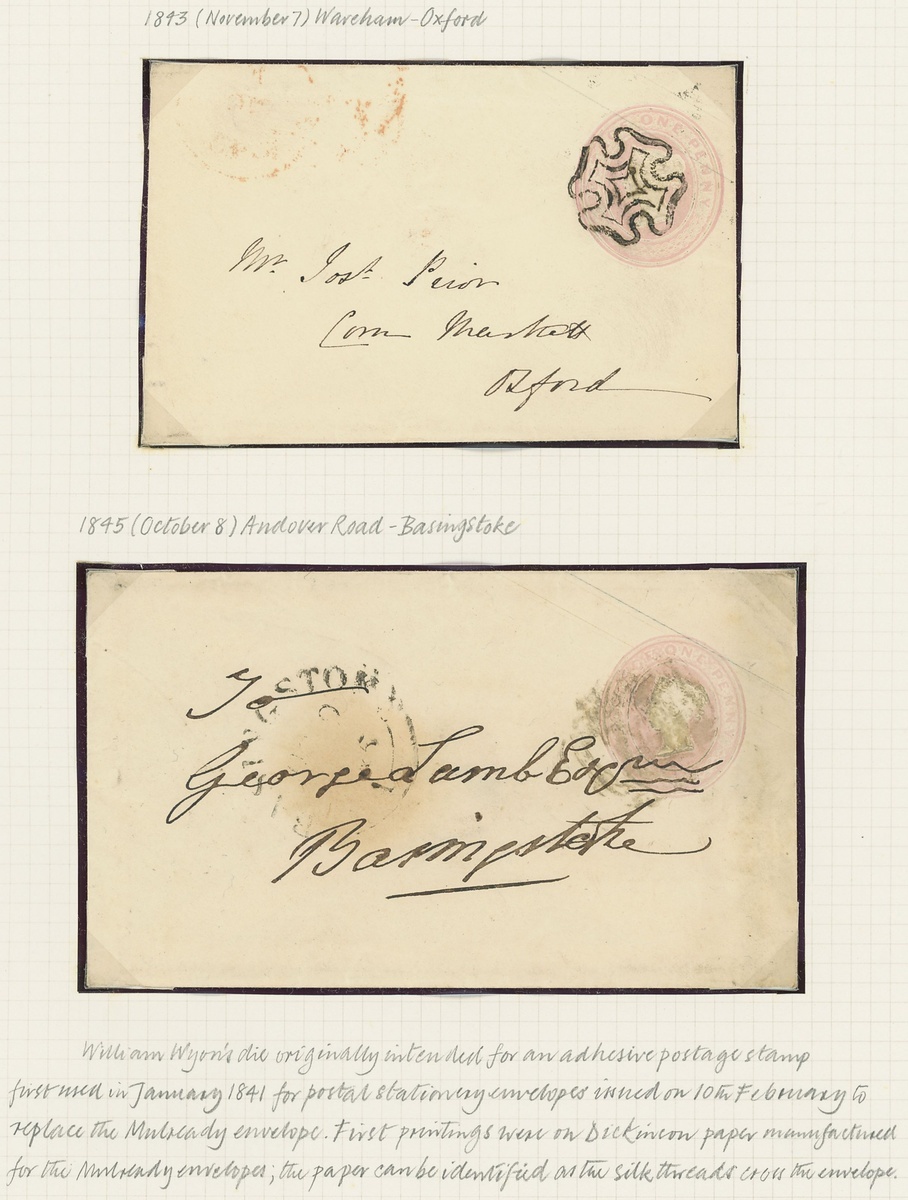 1843 (November 7) Wareham - Oxford
ONE PENNY
Mr. Josh. Prior
Corn Markett
Oxford
1845 (October 8) Andover Road - Basingstoke
ONE PENNY
To
George Lamb Esqre
Basingstoke
William Wyon's die originally intended for an adhesive postage stamp
first used in January 1841 for postal stationery envelopes issued on 10th February to
replace the Mulready envelope. First printings were on Dickinson paper manufactured
for the Mulready envelopes; the paper can be identified as the silk threads cross the envelope.